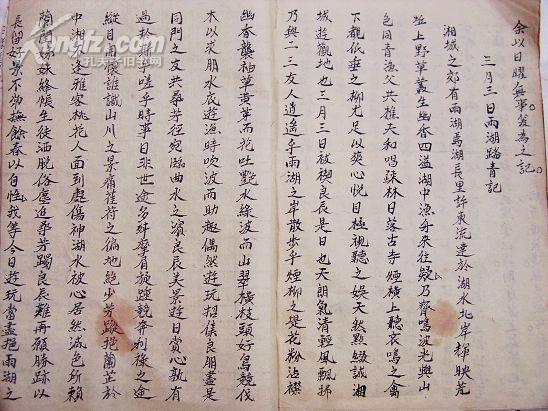 余以日曜無事爰為之記
三月三日雨湖踏青記
湘城之郊有雨湖焉湖長里許東流達於湖水北岸輝映荒
堤上野草叢生幽香四溢湖中漁舟來往緩乃齊鳴波光與山
色同青漁父共樵夫和唱疎林日落古寺煙橫上聽哀鳴之禽
下觀低垂之柳尤足以爽心悅目極視聽之娛天然點綴誠湘
城遊觀地也三月三日被禊良辰是日也天朗氣清輕風飄拂
乃與二三友人逍遙乎雨湖之岸散步乎煙柳之堤花粉沾襟
幽香襲袖草黃葦而花吐艷水綠波而山翠橫枝頭好鳥競伐
木以求朋水底遊魚時吹波而助趣偶然遊玩招僕良朋盡是
同門之文共尋芳徑宛臨曲水之濱良辰美景遊目賞心孰有
過於斯乎嗟乎時事日非世途多舛摩肩旋踵競奔利祿之途
縱目閒懷誰識山川之景痛萑苻之徧地絕少芳蹤挹蘭芷於
中湖不逢雅客桃花人面到處傷神湖水被心居然減色所賴
蘭閨姊妹絳帳生徒洒脫俗慮追尋芳躅良辰難再願勝跡以
長留好景不常撫餘春以自惜我等今日遊玩嘗盡挹雨湖之